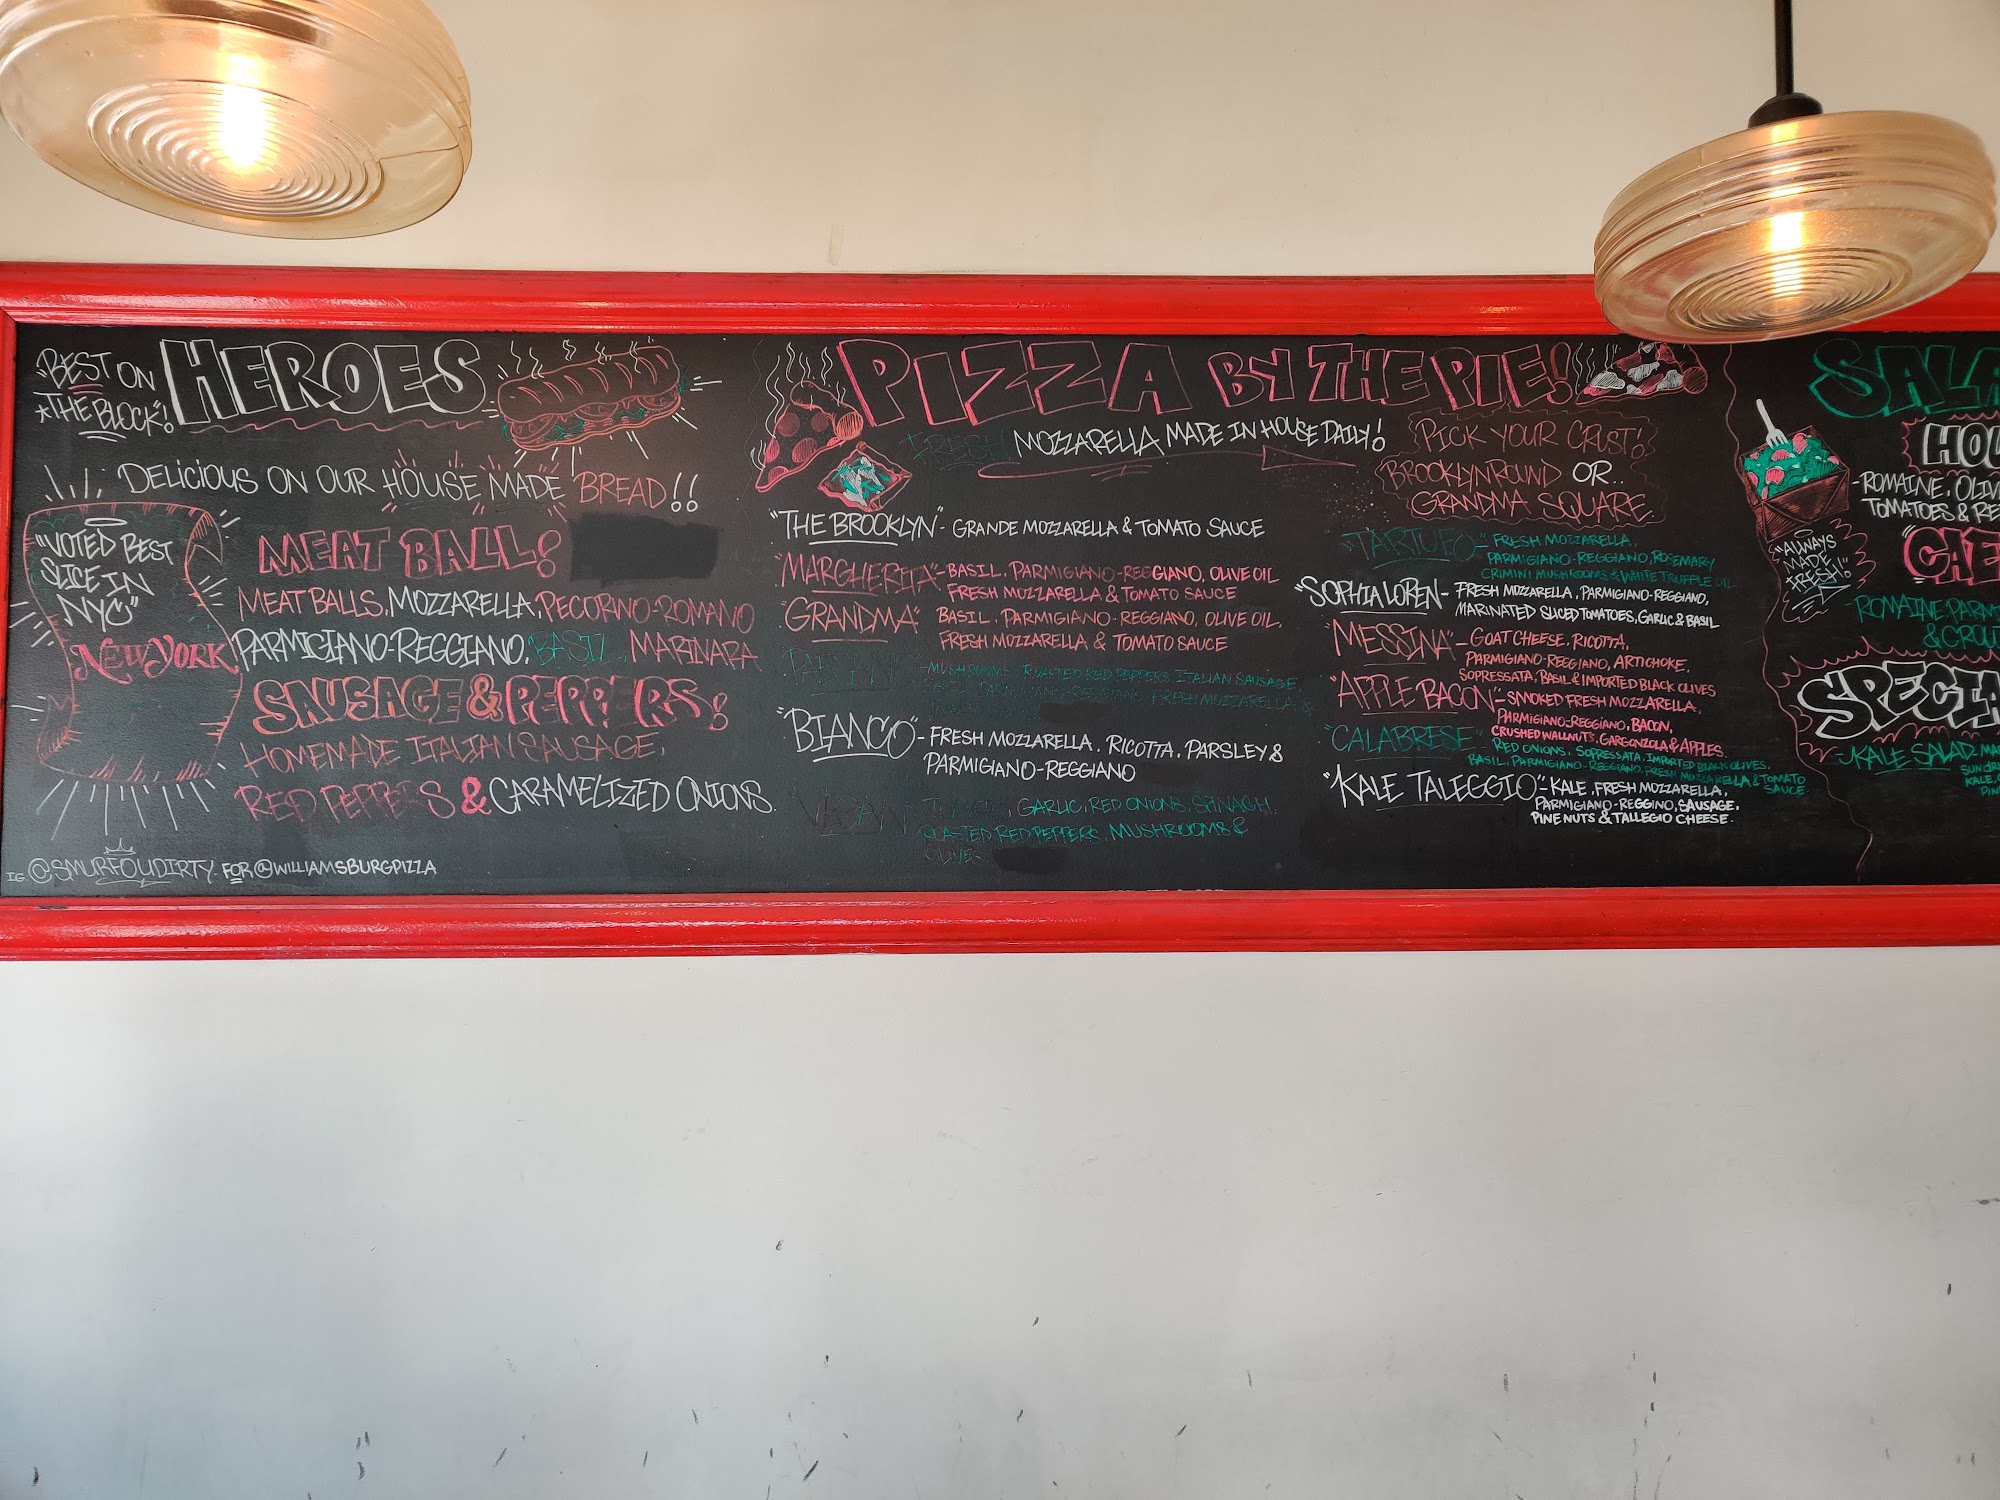 "BEST ON
THE BLOCK"!
HEROES
DELICIOUS ON OUR HOUSE MADE BREAD!!
"VOTED BEST
SLICE IN
NYC"
NEW YORK
MEAT BALL!
MEAT BALLS, MOZZARELLA, PECORINO-ROMANO
PARMIGIANO-REGGIANO, BASIL, MARINARA
SAUSAGE & PEPPERS!
HOMEMADE ITALIAN SAUSAGE,
RED PEPPERS & CARAMELIZED ONIONS.
IG @SMURFOUDIRTY FOR @WILLIAMSBURGPIZZA
PIZZA BY THE PIE!
FRESH MOZZARELLA MADE IN HOUSE DAILY!
PICK YOUR CRUST!
BROOKLYN ROUND OR..
GRANDMA SQUARE
"THE BROOKLYN" - GRANDE MOZZARELLA & TOMATO SAUCE
"MARGHERITA" - BASIL, PARMIGIANO-REGGIANO, OLIVE OIL
FRESH MOZZARELLA & TOMATO SAUCE
"GRANDMA" BASIL, PARMIGIANO-REGGIANO, OLIVE OIL,
FRESH MOZZARELLA & TOMATO SAUCE
MUSHROOMS, ROASTED RED PEPPERS, ITALIAN SAUSAGE,
PARMIGIANO-REGGIANO, FRESH MOZZARELLA &
"BIANCO" - FRESH MOZZARELLA, RICOTTA, PARSLEY &
PARMIGIANO-REGGIANO
VEGAN TOMATO, GARLIC, RED ONIONS, SPINACH,
ROASTED RED PEPPERS, MUSHROOMS &
OLIVES
"TARTUFO" - FRESH MOZZARELLA,
PARMIGIANO-REGGIANO, ROSEMARY
CRIMINI MUSHROOMS & WHITE TRUFFLE OIL
"SOPHIA LOREN - FRESH MOZZARELLA, PARMIGIANO-REGGIANO,
MARINATED SLICED TOMATOES, GARLIC & BASIL
"MESSINA" - GOAT CHEESE, RICOTTA,
PARMIGIANO-REGGIANO, ARTICHOKE,
SOPRESSATA, BASIL & IMPORTED BLACK OLIVES
"APPLE BACON" - SMOKED FRESH MOZZARELLA,
PARMIGIANO-REGGIANO, BACON,
CRUSHED WALNUTS, GARGONZOLA & APPLES.
"CALABRESE" RED ONIONS, SOPRESSATA, IMPORTED BLACK OLIVES,
BASIL, PARMIGIANO-REGGIANO, FRESH MOZZARELLA & TOMATO
SAUCE
"KALE TALEGGIO" - KALE, FRESH MOZZARELLA,
PARMIGIANO-REGGINO, SAUSAGE,
PINE NUTS & TALLEGIO CHEESE.
SALA
HOU
-ROMAINE, OLIV
TOMATOES & RE
"ALWAYS
MADE
FRESH!"
"CAE
-ROMAINE, PARMI
& CROU
SPECIA
-KALE SALAD- MA
SUN DR
KALE,
PIN